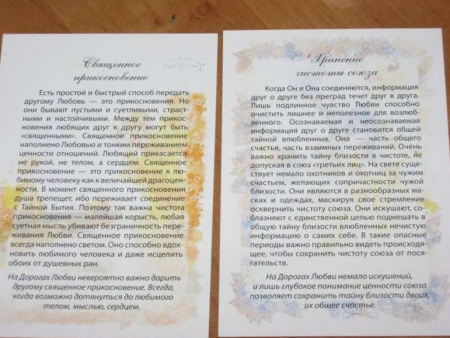 Священное
прикосновение
Есть простой и быстрый способ передать
другому Любовь — это прикосновения. Но
они бывают пустыми и суетливыми, страст-
ными и настойчивыми. Между тем прикос-
новения любящих друг к другу могут быть
«священными». Священное прикосновение
наполнено Любовью и тонким переживанием
ценности отношений. Любящий прикасается
не рукой, не телом, а сердцем. Священное
прикосновение — это прикосновение к лю-
бимому человеку как к величайшей драгоцен-
ности. В момент священного прикосновения
душа трепещет, ибо переживает соединение
с Тайной Бытия. Поэтому так важна чистота
прикосновения — малейшая корысть, любая
суетная мысль убивают безграничность пере-
живания Любви. Священное прикосновение
всегда наполнено светом. Оно способно вдох-
новить любимого человека и даже исцелить
обоих от душевных ран.
На Дорогах Любви невероятно важно дарить
другому священное прикосновение. Всегда,
когда возможно дотянуться до любимого
телом, мыслью, сердцем.
Хранение
чистоты союза
Когда Он и Она соединяются, информация
друг о друге без преград течет друг в друга.
Лишь подлинное чувство Любви способно
очистить лишнее и неполезное для возлюб-
ленного. Осознаваемая и неосознаваемая
информация друг о друге становится общей
тайной влюбленных. Она — часть общего
счастья, часть взаимных переживаний. Очень
важно хранить тайну близости в чистоте, не
допуская в союз «третьих лиц». На свете суще-
ствует немало охотников и охотниц за чужим
счастьем, желающих сопричастности чужой
близости. Они являются в разнообразных мас-
ках и одеждах, маскируя свое стремление
осквернить чистоту союза. Они искушают, со-
блазняют с единственной целью подмешать в
общую тайну близости влюбленных нечистую
информацию о самих себе. В такие опасные
периоды важно правильно видеть происходя-
щее, чтобы сохранить чистоту союза от пося-
гательств.
На Дорогах Любви немало искушений,
и лишь глубокое понимание ценности союза
позволяет сохранить тайну близости двоих,
их общее счастье.